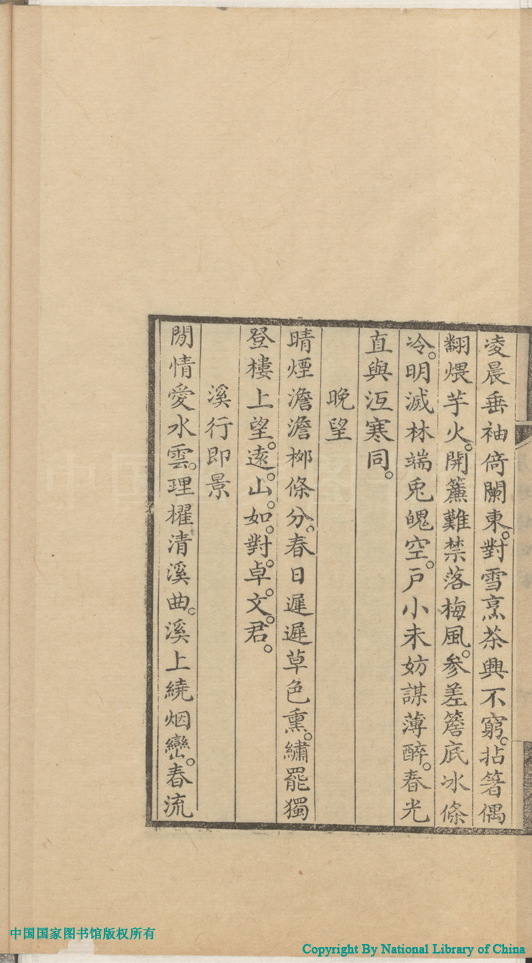 凌晨垂袖倚闌東。對雪烹茶興不窮。拈箸偶
翻煨芋火。開簾難禁落梅風。參差簷底冰條
冷。明滅林端兎魄空。戸小未妨謀薄醉。春光
直與沍寒同。
晚望
晴煙澹澹柳條分。春日遲遲草色熏。繡罷獨
登樓上望。遠。山。如。對。卓。文。君。
溪行即景
閒情愛水雲。理櫂清溪曲。溪上繞烟巒。春流
中国国家图书馆版权所有
Copyright By National Library of China